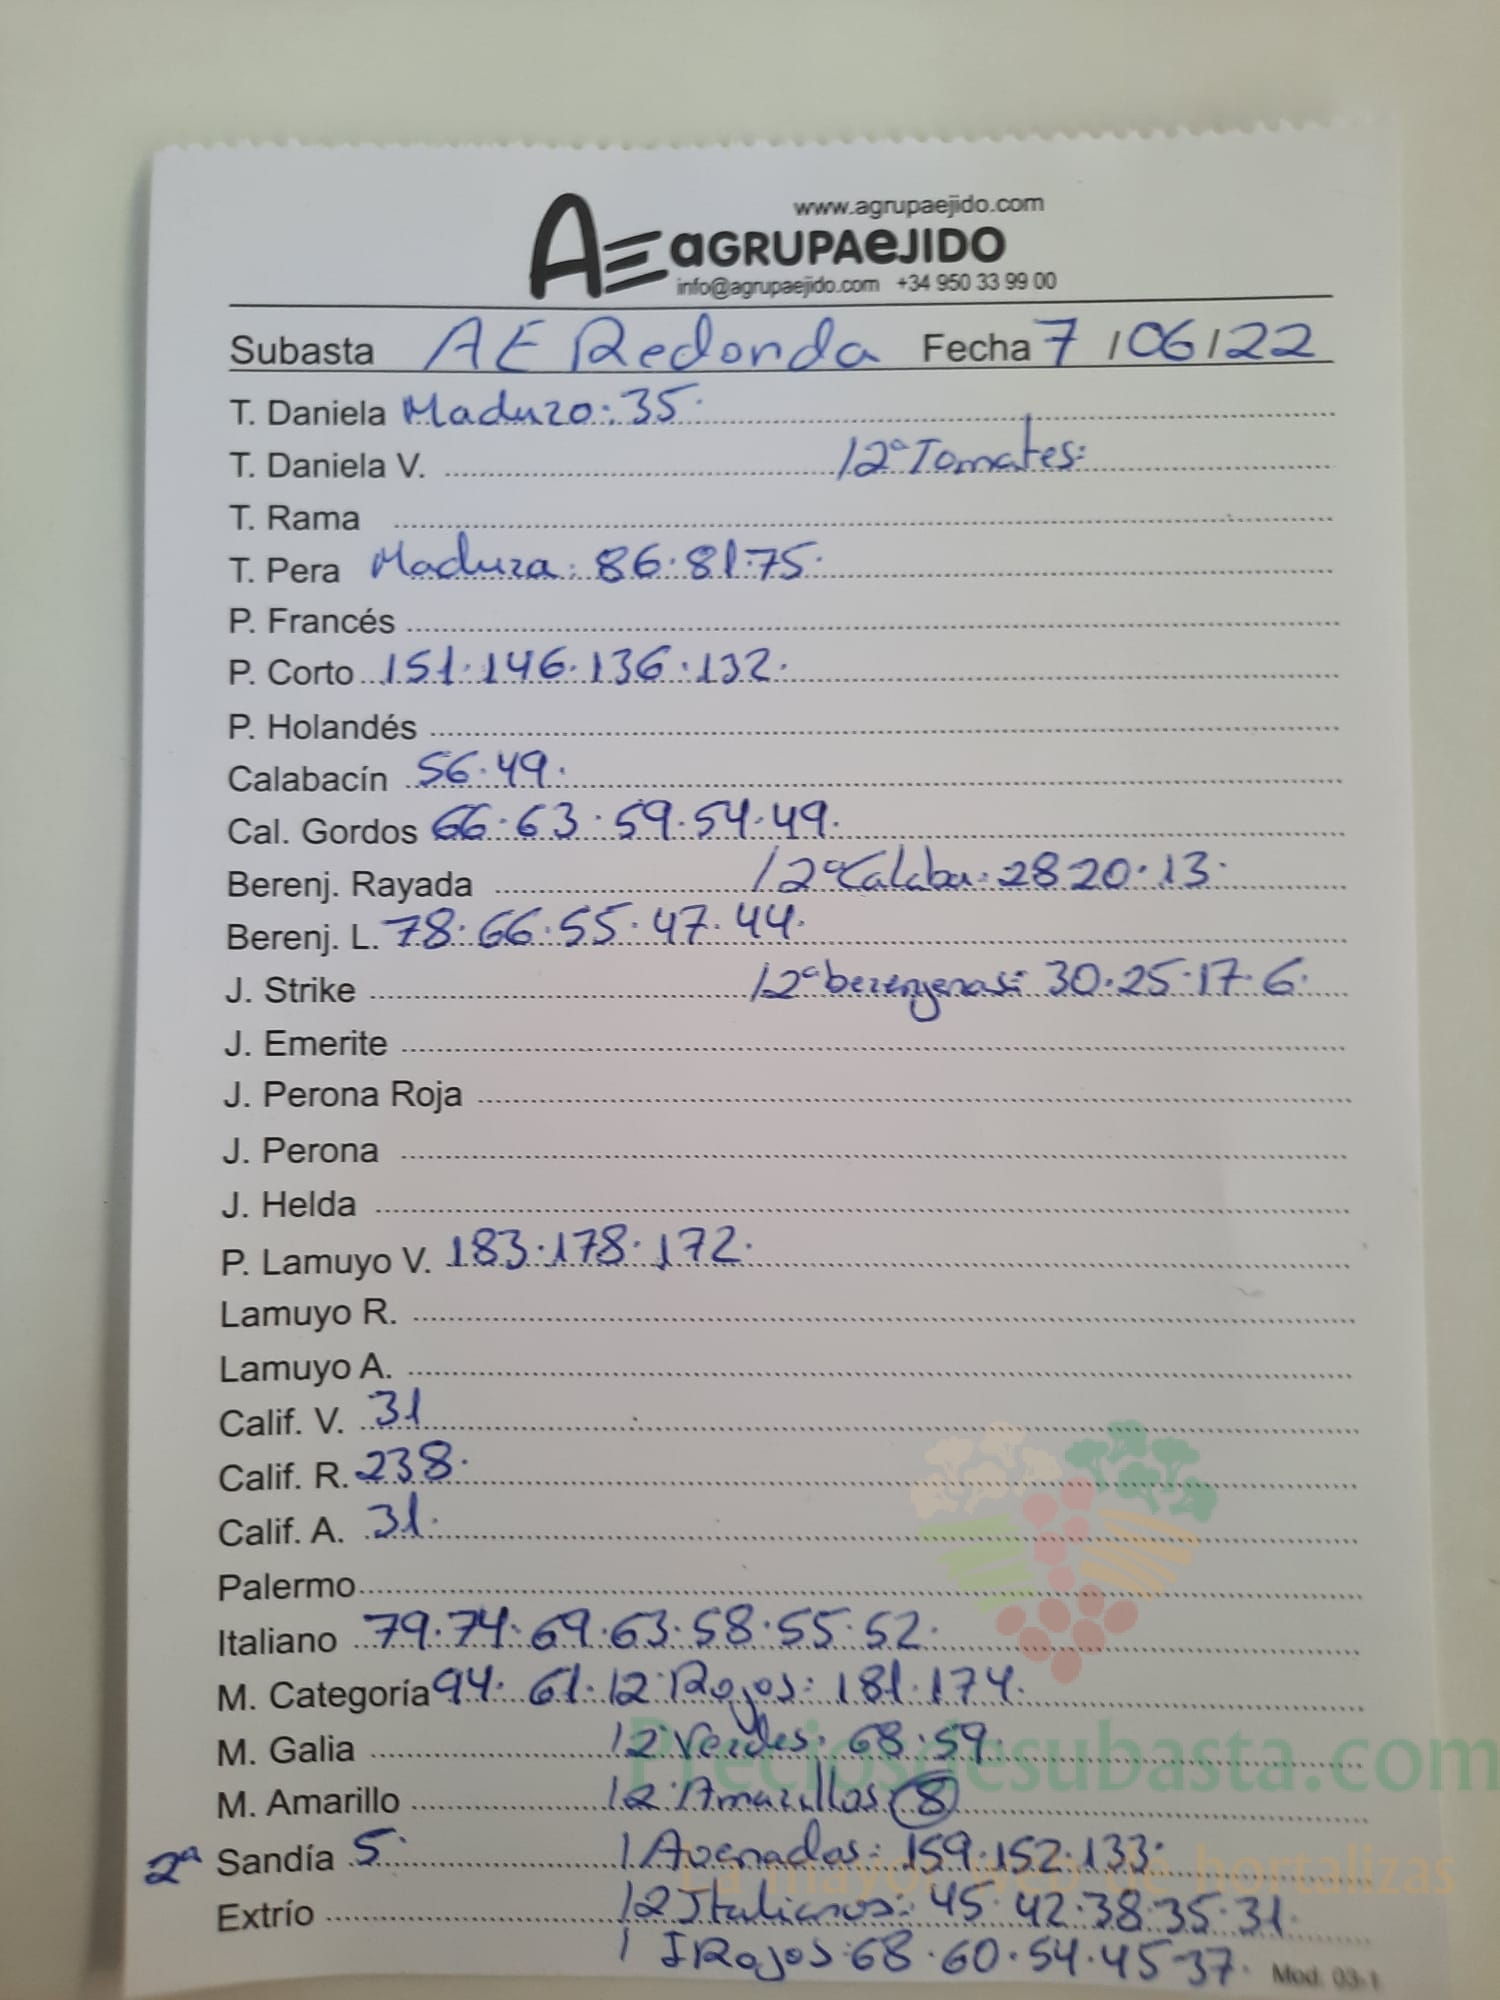 www.agrupaejido.com
AE aGRUPAeJIDO
info@agrupaejido.com +34 950 33 99 00
Subasta AE Redonda Fecha 7/06/22
T. Daniela Maduro: 35.
T. Daniela V. /2ª Tomates:
T. Rama
T. Pera Madura: 86.81.75.
P. Francés
P. Corto 151.146.136.132.
P. Holandés
Calabacín 56.49.
Cal. Gordos 66.63.59.54.49.
Berenj. Rayada /2ª Calaba: 28 20.13.
Berenj. L. 78.66.55.47.44.
J. Strike /2ª berenjenas: 30.25.17.6.
J. Emerite
J. Perona Roja
J. Perona
J. Helda
P. Lamuyo V. 183.178.172.
Lamuyo R.
Lamuyo A.
Calif. V. 31
Calif. R. 238.
Calif. A. 31.
Palermo
Italiano 79.74.69.63.58.55.52.
M. Categoría 94. 61. /2ª Rojos: 181.174.
M. Galia /2ª Verdes: 68.59.
M. Amarillo /2ª Amarillos: 8
2ª Sandía 5. / Asenados: 159.152.133.
Extrío /2 Italianos: 45.42.38.35.31.
/ I Rojos: 68.60.54.45 37. Mod. 03-1
Preciosdesubasta.com
La mayor web de hortalizas